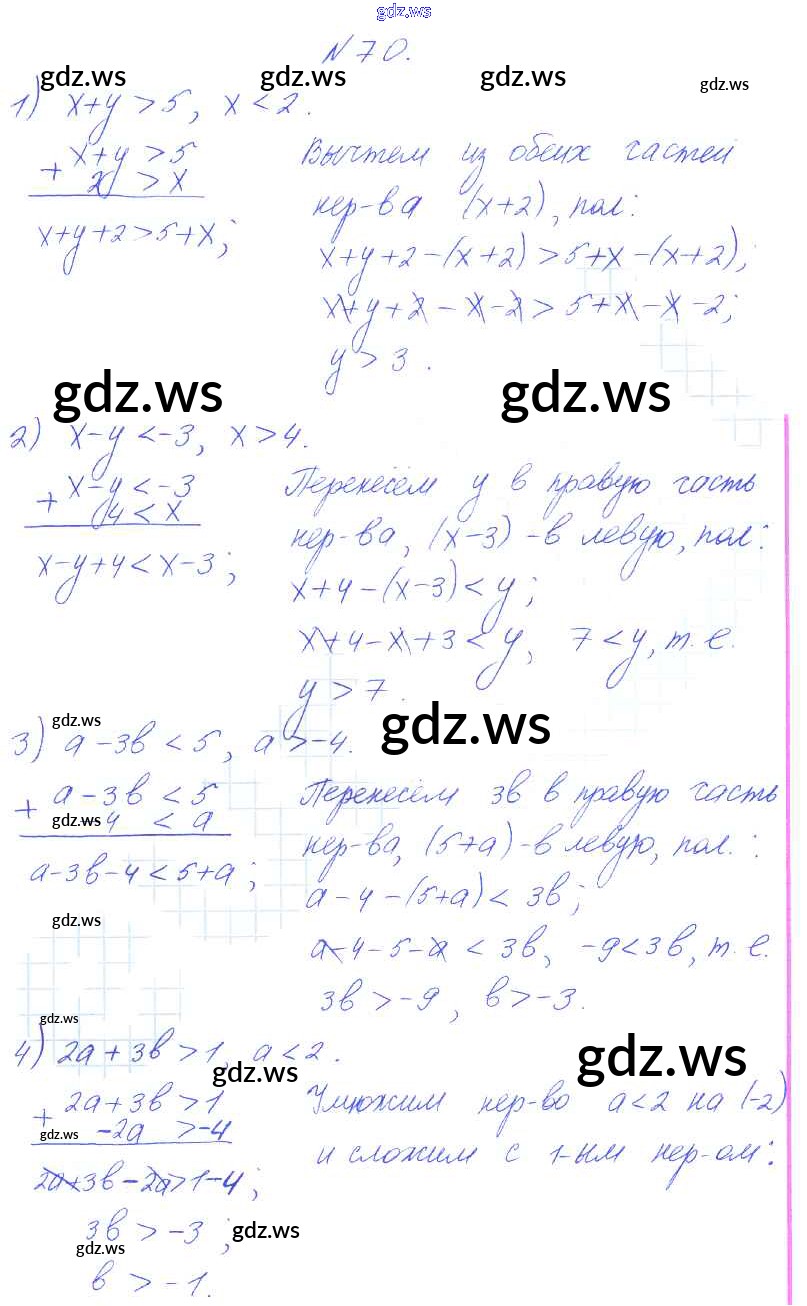 gdz.ws
N 70.
gdz.ws gdz.ws gdz.ws gdz.ws
1) x+y>5, x<2.
x+y>5
+ 2 > x
x+y+2>5+x;
Вычтем из обеих частей
нер-ва (x+2), пол:
x+y+2-(x+2)>5+x-(x+2);
x+y+2-x-2>5+x-x-2;
y>3.
gdz.ws gdz.ws
2) x-y<-3, x>4.
x-y<-3
+ 4<x
x-y+4<x-3;
Перенесём y в правую часть
нер-ва, (x-3) -в левую, пол:
x+4-(x-3)<y;
x+4-x+3<y, 7<y, т.е.
y>7.
gdz.ws gdz.ws
3) a-3b<5, a>-4.
a-3b<5
+ -4 < a
gdz.ws
a-3b-4<5+a;
Перенесём 3b в правую часть
нер-ва, (5+a) -в левую, пол.:
a-4-(5+a)<3b;
gdz.ws
a-4-5-a<3b, -9<3b, т.е.
3b>-9, b>-3.
gdz.ws
4) 2a+3b>1, a<2.
gdz.ws gdz.ws
2a+3b>1
+ -2a >-4
gdz.ws
2a+3b-2a>1-4;
3b>-3;
gdz.ws gdz.ws
b>-1.
Умножим нер-во a<2 на (-2)
и сложим с 1-ым нер-ом: